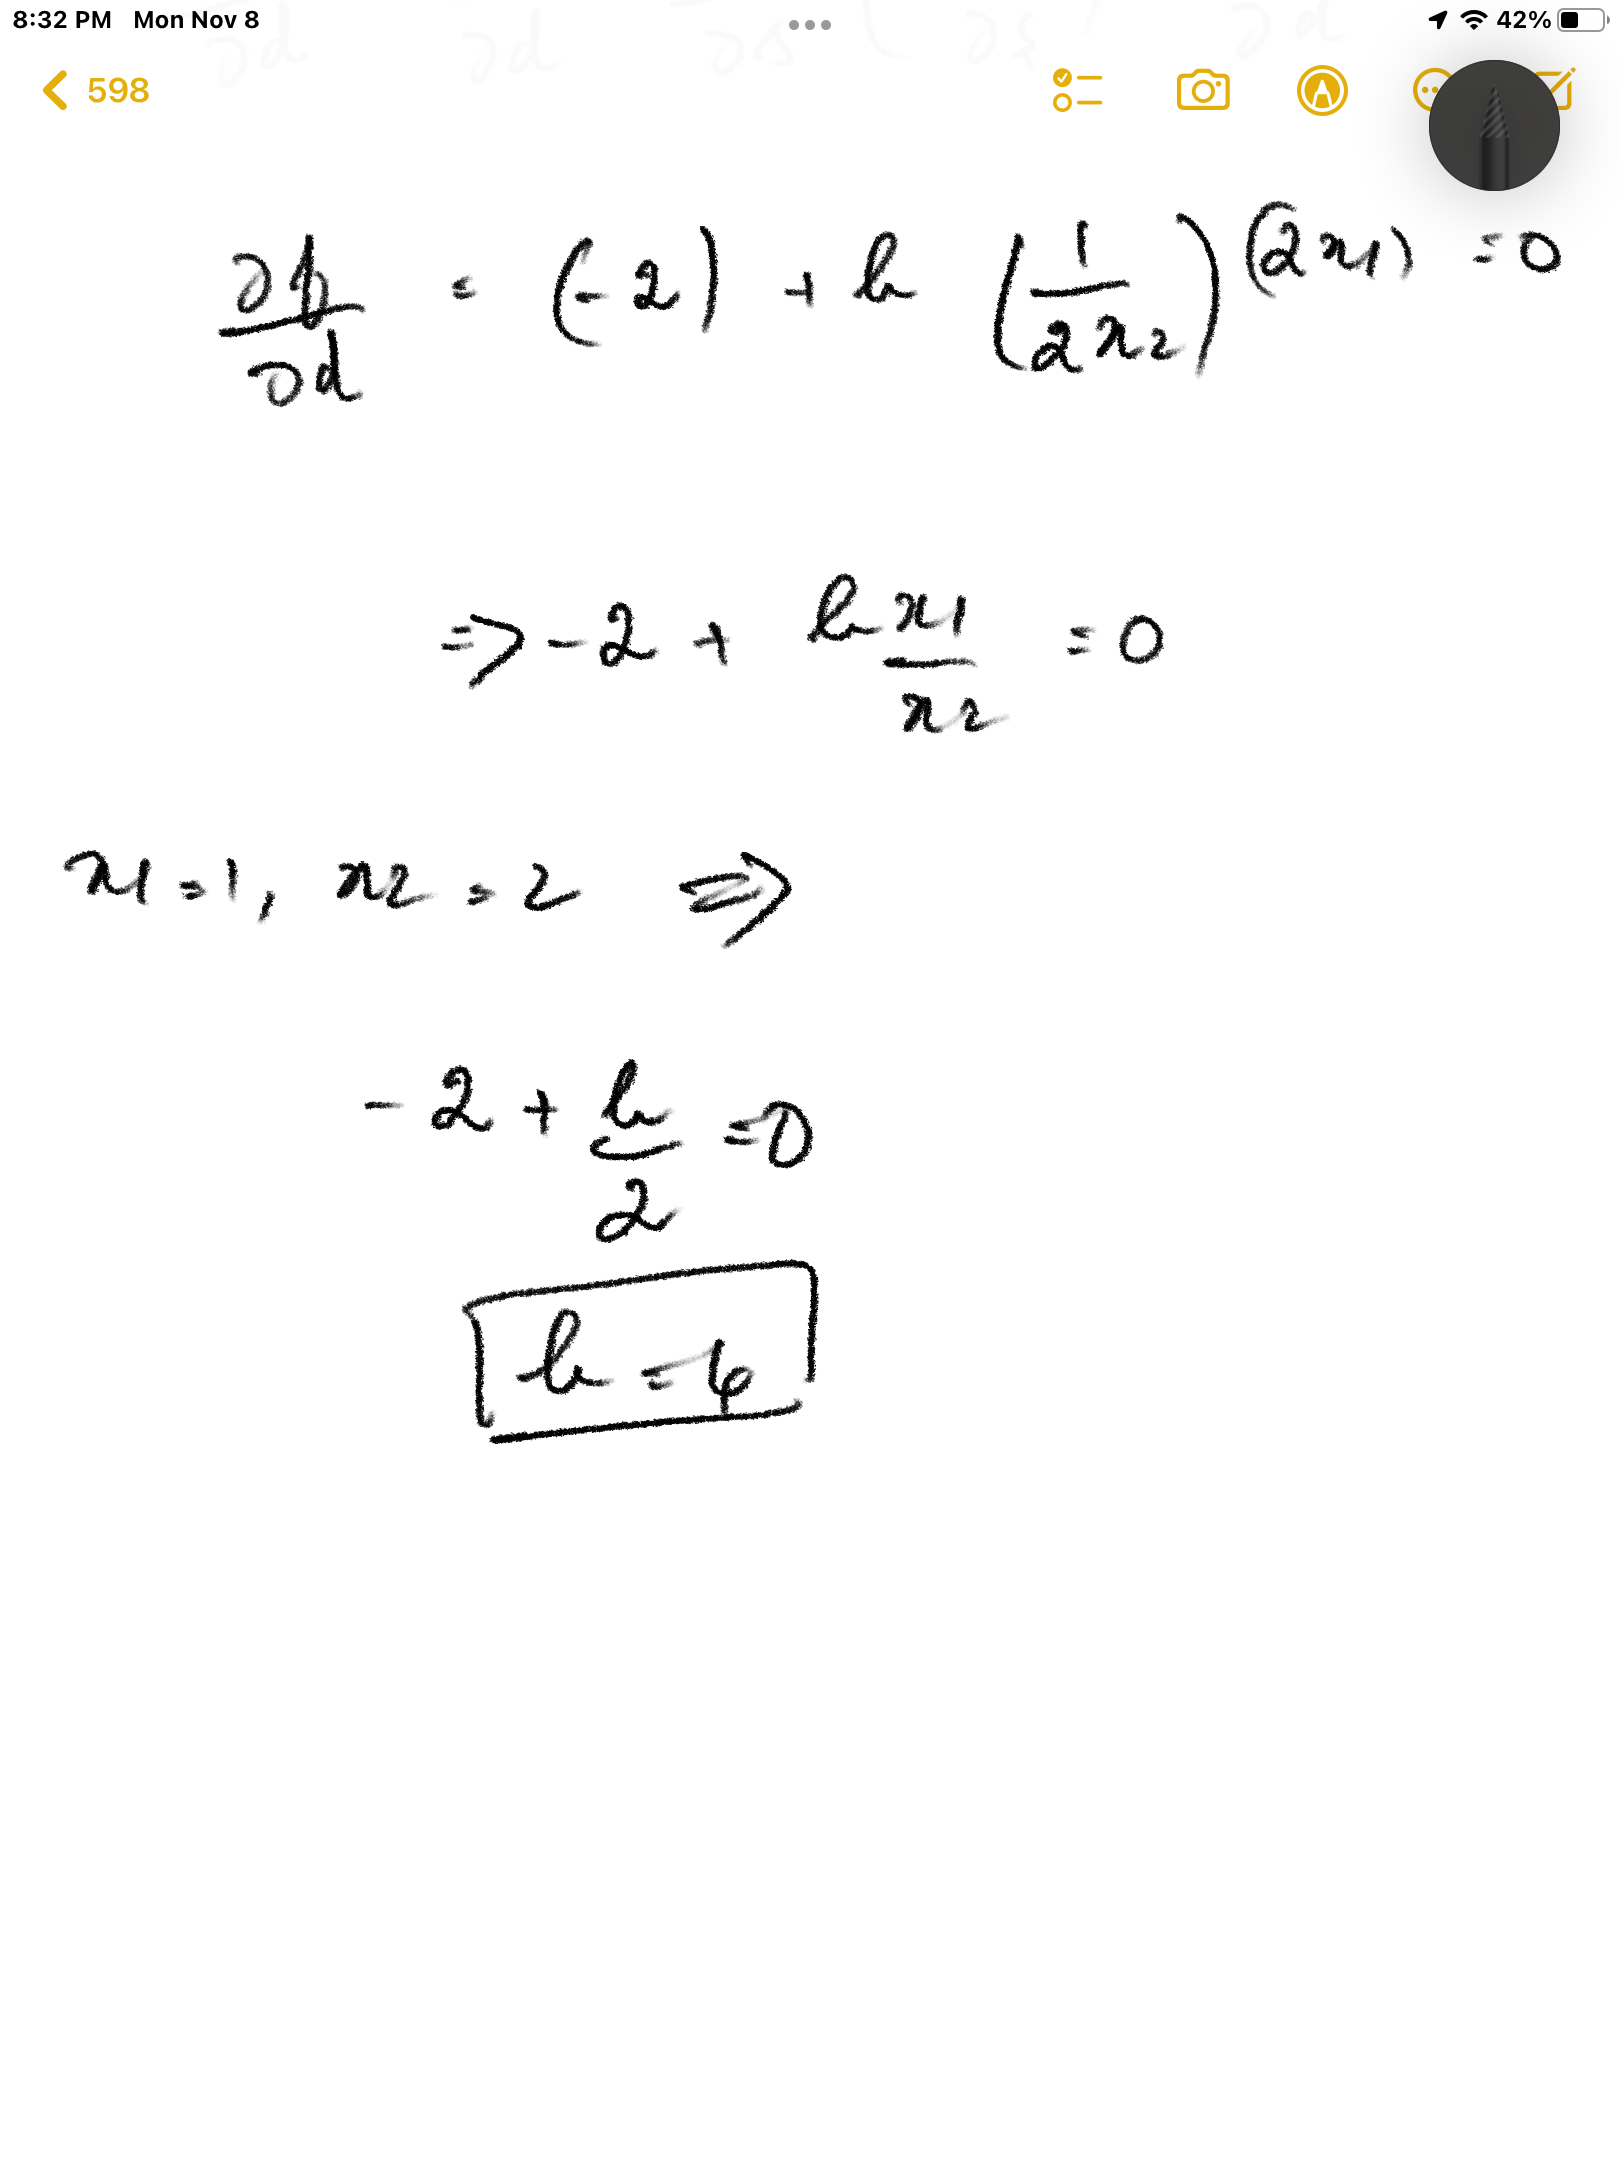 8:32 PM Mon Nov 8 42%
598
∂f/∂d = (-2) + b (1/2x2) (2x1) = 0
=> -2 + bx1/x2 = 0
x1 = 1, x2 = 2 =>
-2 + b/2 = 0
b = 4